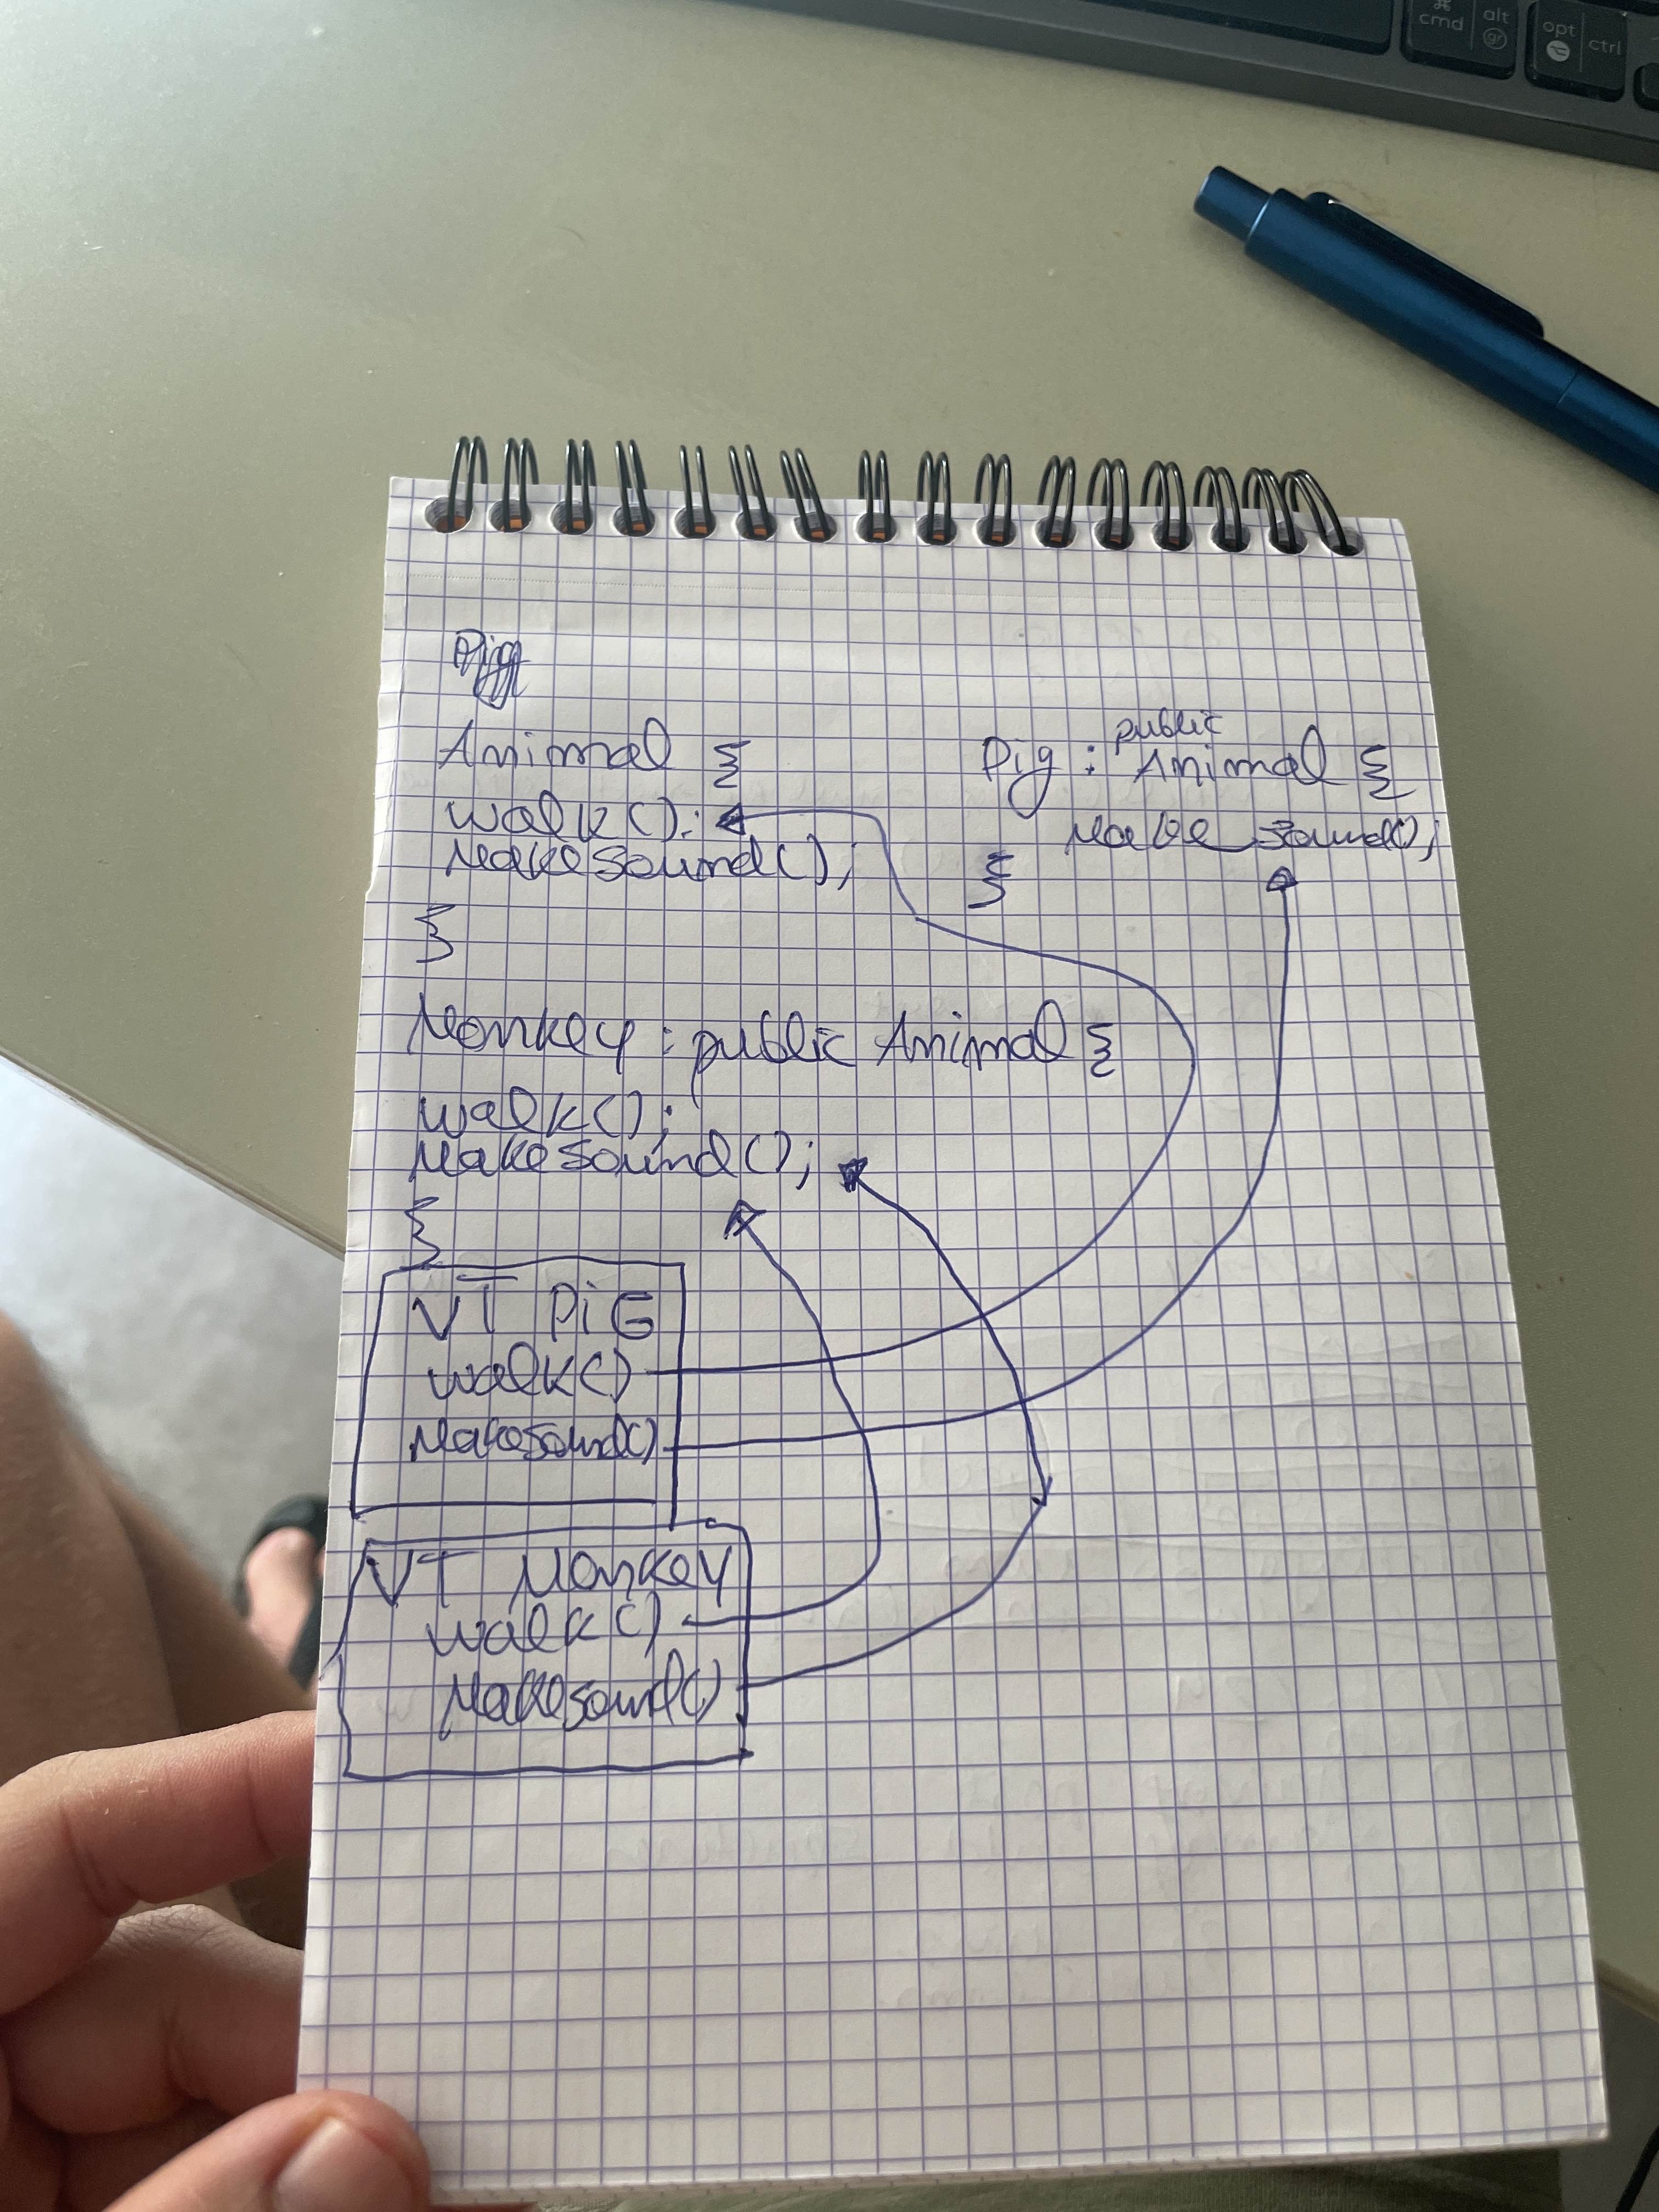 cmd
alt
gr
opt
ctrl
Animal {
walk();
MakeSound();
}
Pig : public Animal {
Make Sound();
}
Monkey : public Animal {
walk();
MakeSound();
}
VT PiG
walk()
MakeSound()
VT Monkey
walk()
MakeSound()